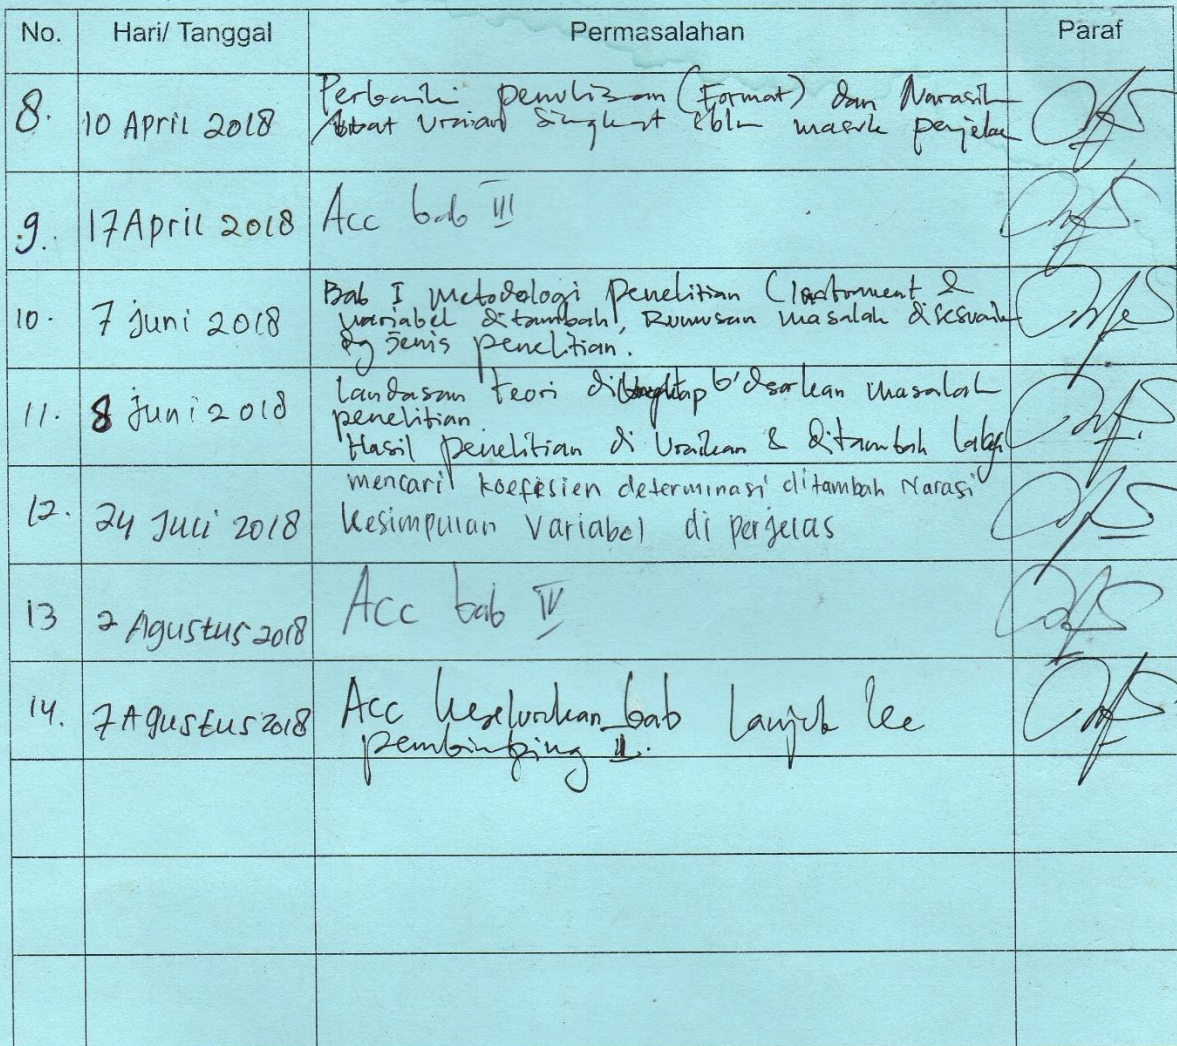 No. Hari/ Tanggal Permasalahan Paraf
8. 10 April 2018 Perbaiki penulisan (Format) dan Narasi
buat uraian Singkat sblm masuk penjela
9. 17 April 2018 Acc bab III
10. 7 Juni 2018 Bab I Metodologi penelitian (Instrument &
variabel ditambah, Rumusan masalah disesuaik
dg jenis penelitian.
11. 8 Juni 2018 Landasan teori b'dsarkan masalah
penelitian
Hasil penelitian di Uraikan & ditambah lagi
12. 24 Juli 2018 mencari koefesien determinasi ditambah Narasi
Kesimpulan Variabel di perjelas
13 2 Agustus 2018 Acc bab IV
14. 7 Agustus 2018 Acc keseluruhan bab lanjut ke
pembimbing II.